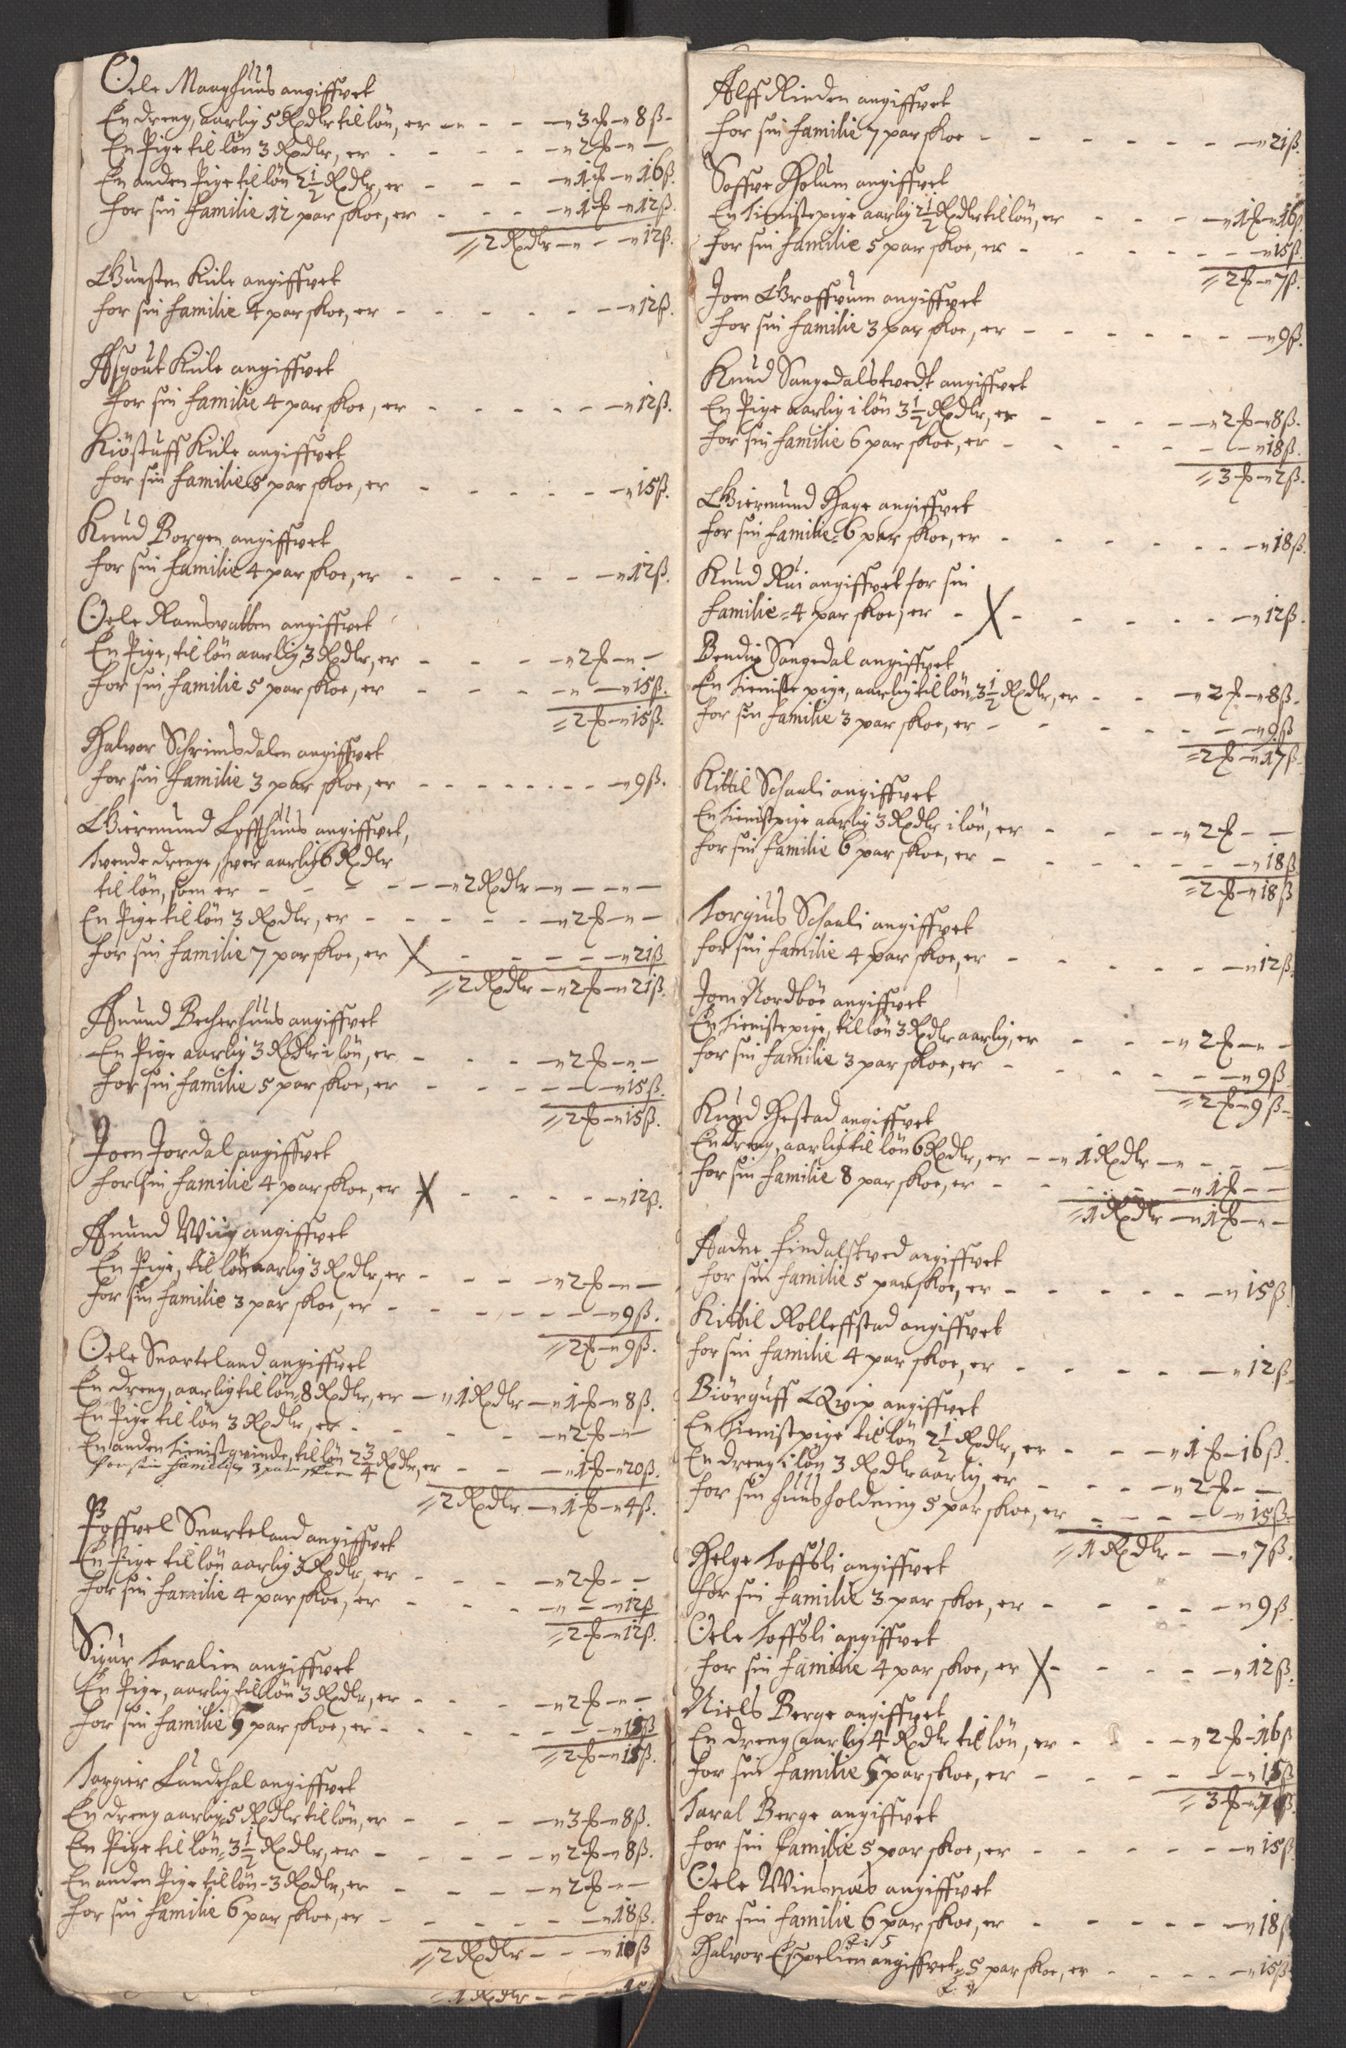 Oele Maaghuus angiffvet
En dreng, aarlig 5 Rxdlr til løn, er - - - - 3 ƒ - 8 ß
En Pige til løn 3 Rxdlr, er - - - - 2 ƒ - -
En anden Pige til løn 2 1/2 Rxdlr, er - - - 1 ƒ - 16 ß.
for sin familie 12 par skoe, er - - - 1 ƒ - 12 ß.
2 Rxdlr - - - 12 ß.
Gunsten Kiile angiffvet
for sin familie 4 par skoe, er - - - - - 12 ß.
Asgout Kiile angiffvet
for sin familie 4 par skoe, er - - - - - 12 ß.
Kiøstuff Kiile angiffvet
for sin familie 5 par skoe, er - - - - - 15 ß.
Knud Borgen angiffvet
for sin familie 4 par skoe, er - - - - - 12 ß.
Oele Ramsvatten angiffvet
En Pige, til løn aarlig 3 Rxdlr, er - - - 2 ƒ - -
for sin familie 5 par skoe, er - - - - 15 ß.
2 ƒ - 15 ß.
Halvor Schrimsdalen angiffvet
for sin familie 3 par skoe, er - - - - - 9 ß.
Giermund Loffthuus angiffvet,
tvende drenge, hver aarlig 6 Rxdlr
til løn, som er - - - - 2 Rxdlr - - - -
En Pige til løn 3 Rxdlr, er - - - - - 2 ƒ - -
for sin familie 7 par skoe, er X - - - - 21 ß
2 Rxdlr - 2 ƒ - 21 ß.
Anund Becherhuus angiffvet
En Pige aarlig 3 Rxdlr i løn, er - - - 2 ƒ - -
for sin familie 5 par skoe, er - - - - 15 ß.
2 ƒ - 15 ß.
Joen Jordal angiffvet
for sin familie 4 par skoe, er X - - - - 12 ß.
Anund Wiig angiffvet
En Pige, til løn aarlig 3 Rxdlr, er - - - 2 ƒ - -
for sin familie 3 par skoe, er - - - - 9 ß.
2 ƒ - 9 ß.
Oele Snarteland angiffvet
En dreng, aarlig til løn 8 Rxdlr, er - 1 Rxdlr - 1 ƒ - 8 ß.
En Pige til løn 3 Rxdlr, er - - - - 2 ƒ - -
En anden tienistqvinde, til løn 2 3/4 Rxdlr, er - - 1 ƒ - 20 ß.
for sin familie 3 par skoe
2 Rxdlr - 1 ƒ - 4 ß.
Poffvel Snarteland angiffvet
En Pige til løn aarlig 3 Rxdlr, er - - - 2 ƒ - -
for sin familie 4 par skoe, er - - - - 12 ß
2 ƒ - 12 ß.
Sigur taralien angiffvet
En Pige, aarlig til løn 3 Rxdlr, er - - - 2 ƒ - -
for sin familie 5 par skoe, er - - - - 15 ß
2 ƒ - 15 ß.
Torgier Lundehal angiffvet
En dreng aarlig 5 Rxdlr til løn, er - - - 3 ƒ - 8 ß.
En Pige til løn 3 1/2 Rxdlr, er - - - 2 ƒ - 8 ß.
En anden Pige til løn 3 Rxdlr, er - - - 2 ƒ - -
for sin familie 6 par skoe, er - - - - 18 ß.
2 Rxdlr - - - 10 ß
1 Rxdlr - -
Alff Rinden angiffvet
for sin familie 7 par skoe - - - - - 21 ß.
Soffve Holum angiffvet
En tieniste pige aarlig 2 1/2 Rxdlr til løn, er - - - 1 ƒ - 16 ß.
for sin familie 5 par skoe, er - - - - 15 ß.
2 ƒ - 7 ß.
Joen Groffvum angiffvet
for sin familie 3 par skoe, er - - - - - 9 ß.
Knud Sangedalstvedt angiffvet
En Pige aarlig i løn 3 1/2 Rxdlr, er - - - 2 ƒ - 8 ß.
for sin familie 6 par skoe, er - - - - 18 ß.
3 ƒ - 2 ß.
Giermund Hage angiffvet
for sin familie 6 par skoe, er - - - - - 18 ß.
Knud Rui angiffvet for sin
familie 4 par skoe, er - X - - - - 12 ß.
Bendix Sangedal angiffvet
En tieniste pige, aarlig til løn 3 1/2 Rxdlr, er - - - 2 ƒ - 8 ß.
for sin familie 3 par skoe, er - - - - 9 ß
2 ƒ - 17 ß.
Kittil Schaali angiffvet
En tienistpige aarlig 3 Rxdlr i løn, er - - - 2 ƒ - -
for sin familie 6 par skoe, er - - - - 18 ß
2 ƒ - 18 ß
Torgius Schaali angiffvet
for sin familie 4 par skoe, er - - - - - 12 ß.
Joen Nordbøe angiffvet
En tieniste pige, til løn 3 Rxdlr aarlig, er - - - 2 ƒ - -
for sin familie 3 par skoe, er - - - - 9 ß.
2 ƒ - 9 ß.
Knud Hestad angiffvet
En dreng, aarlig til løn 6 Rxdlr, er - 1 Rxdlr - - - -
for sin familie 8 par skoe, er - - - - 1 ƒ - -
1 Rxdlr - 1 ƒ - -
Aadne Findalstved angiffvet
for sin familie 5 par skoe, er - - - - - 15 ß.
Kittil Rolleffstad angiffvet
for sin familie 4 par skoe, er - - - - - 12 ß.
Biørguff Qvip angiffvet
En tienistpige til løn 2 1/2 Rxdlr, er - - - 1 ƒ - 16 ß.
En dreng i løn 3 Rxdlr aarlig, er - - - 2 ƒ - -
for sin huusholdning 5 par skoe, er - - - - 15 ß.
1 Rxdlr - - 7 ß.
Helge toffsli angiffvet
for sin familie 3 par skoe, er - - - - - 9 ß.
Oele toffsli angiffvet
for sin familie 4 par skoe, er X - - - - 12 ß.
Niels Berge angiffvet
En dreng aarlig 4 Rxdlr til løn, er - - - 2 ƒ - 16 ß
for sin familie 5 par skoe, er - - - - 15 ß
3 ƒ - 7 ß.
taral Berge angiffvet
for sin familie 5 par skoe, er - - - - - 15 ß.
Oele Winsnæs angiffvet
for sin familie 6 par skoe, er - - - - - 18 ß
Halvor Espelien angiffvet 5 par skoe, er - - - - 15 ß